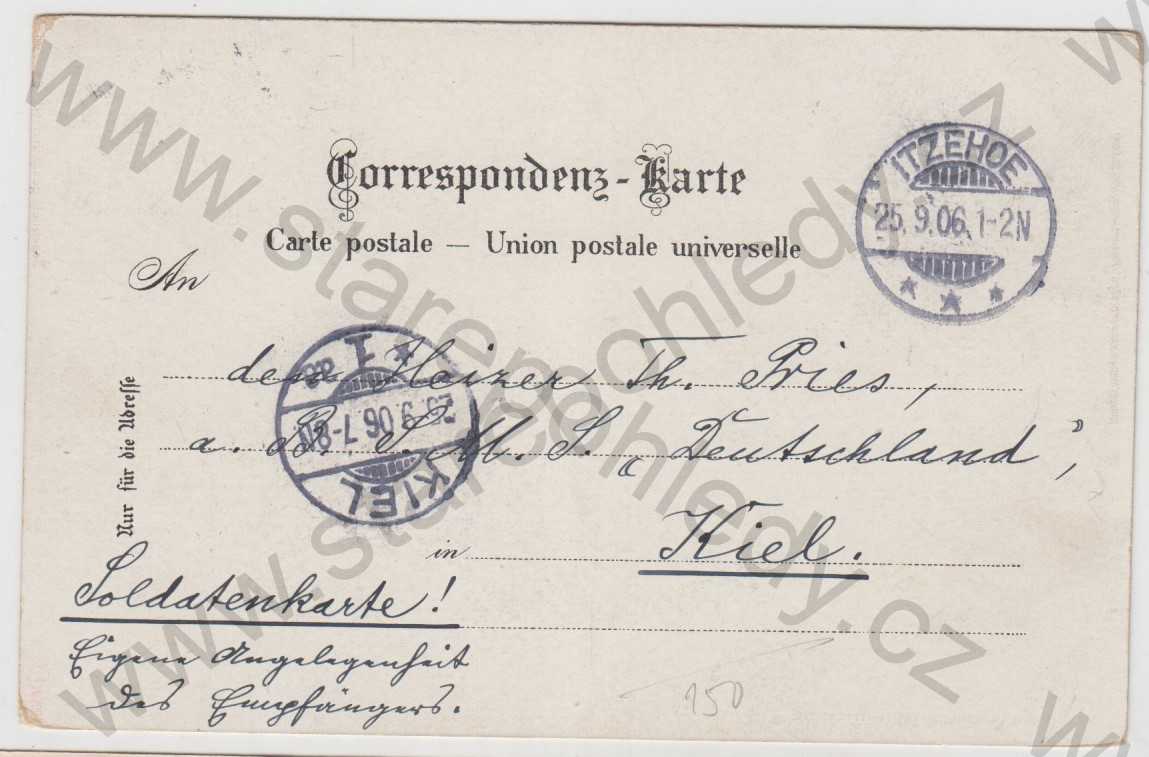 Correspondenz-Karte
Carte postale — Union postale universelle
ITZEHOE
25.9.06.1-2N
An
dem Heizer Th. Pries,
a. B. S. M. S. „Deutschland",
KIEL
9 06 7-8N
in Kiel.
Nur für die Adresse
Soldatenkarte!
Eigene Angelegenheit
des Empfängers.
150
www.starepohledy.cz
www.starepohledy.cz